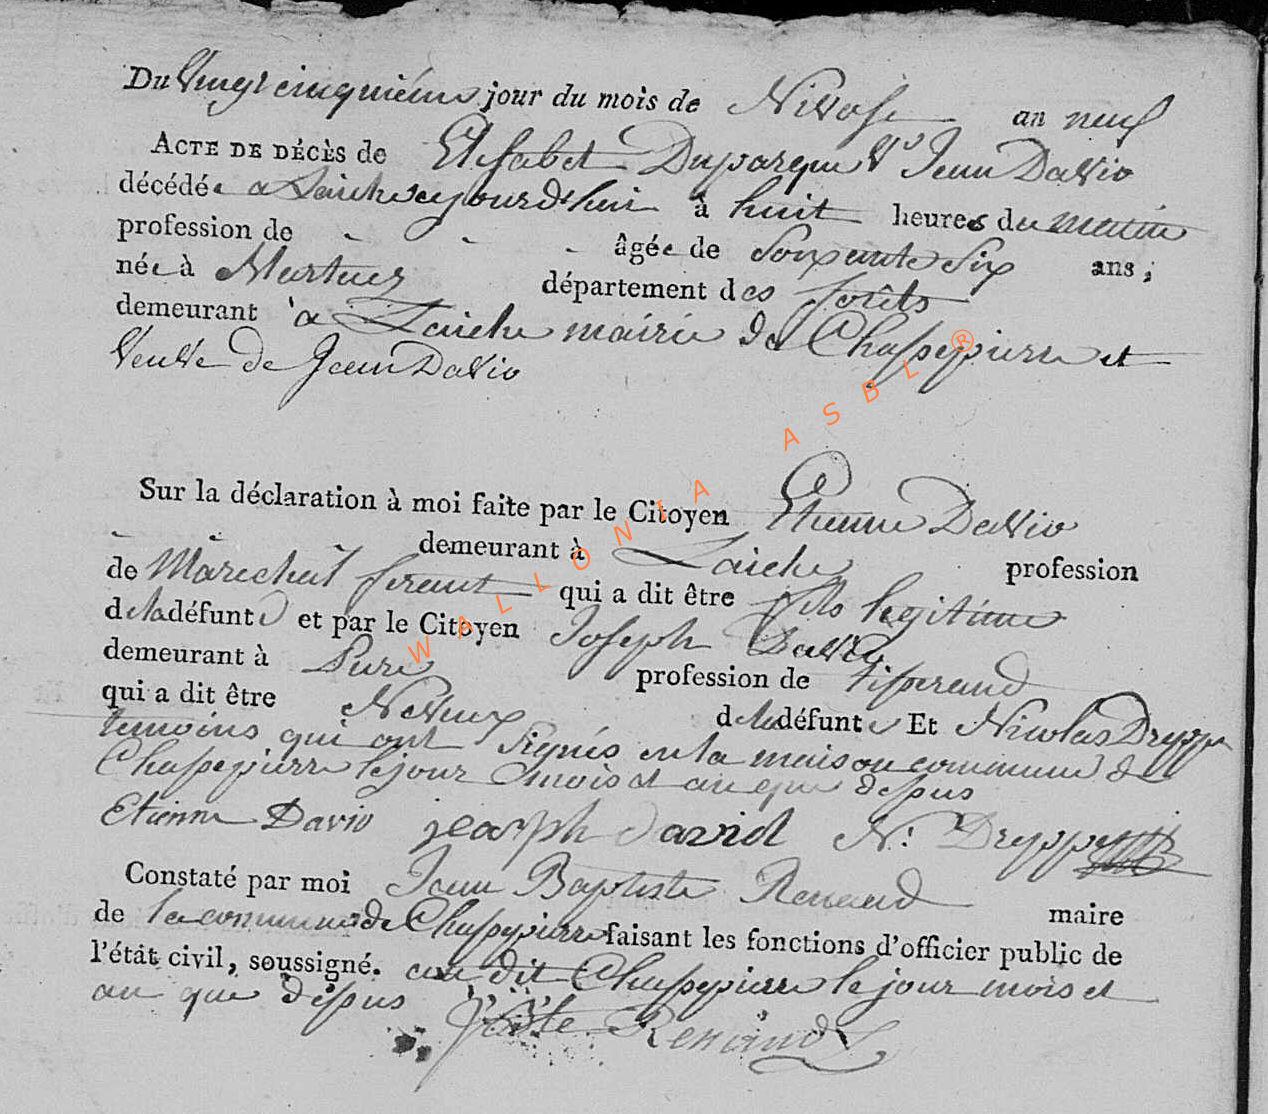 Du Vingt cinquiéme jour du mois de Nivose an neuf
ACTE DE DÉCÈS de Elisabet Duparque Vᵉ Jean Davio
décédée a Laiche aujourd'hui à huit heures du matin
profession de - - - âgée de Soixante Six ans ;
née à Martues département des forêts
demeurant à Laiche mairie de Chassepierre et
Veuve de Jean Davio
Sur la déclaration à moi faite par le Citoyen Etienne Davio
demeurant à Laiche profession
de Marechal ferant qui a dit être fils legitime
de la défunte et par le Citoyen Joseph David
demeurant à Pure profession de tisserand
qui a dit être Neveux de la défunte Et Nicolas Dreppe
temoins qui ont Signés en la maison commune de
Chassepierre le jour mois et an que dessus
Etienne Davio joseph david N: Dreppe
Constaté par moi Jean Baptiste Renaud maire
de la commune de Chassepierre faisant les fonctions d'officier public de
l'état civil, soussigné. au dit Chassepierre le jour mois et
an que dessus J: Bste Renaud
WALLONIA ASBL ®